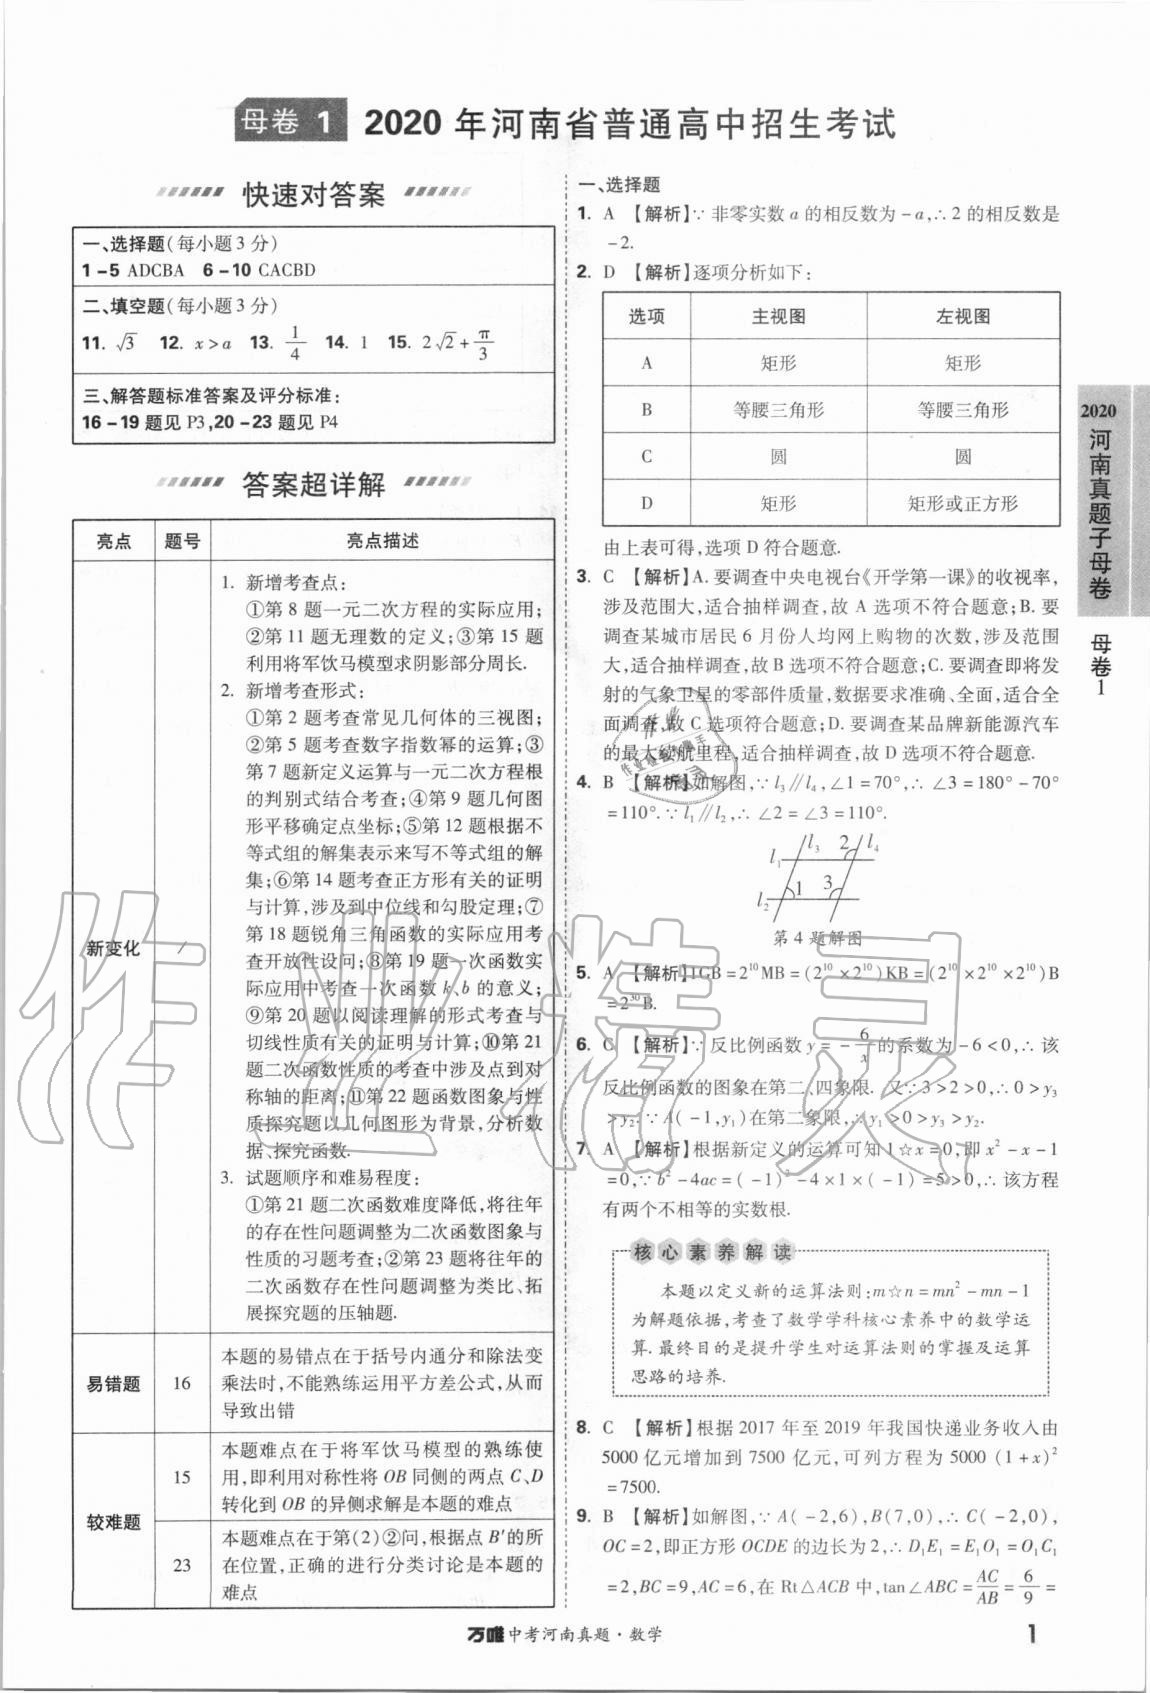 母卷 1 2020年河南省普通高中招生考试
快速对答案
一、选择题(每小题3分)
1-5 ADCBA 6-10 CACBD
二、填空题(每小题3分)
11. √3 12. x>a 13. 1/4 14. 1 15. 2√2+π/3
三、解答题标准答案及评分标准:
16-19题见P3,20-23题见P4
答案超详解
亮点 题号 亮点描述
新变化 /
1. 新增考查点:
①第8题一元二次方程的实际应用;
②第11题无理数的定义;③第15题
利用将军饮马模型求阴影部分周长.
2. 新增考查形式:
①第2题考查常见几何体的三视图;
②第5题考查数字指数幂的运算;③
第7题新定义运算与一元二次方程根
的判别式结合考查;④第9题几何图
形平移确定点坐标;⑤第12题根据不
等式组的解集表示来写不等式组的解
集;⑥第14题考查正方形有关的证明
与计算,涉及到中位线和勾股定理;⑦
第18题锐角三角函数的实际应用考
查开放性设问;⑧第19题一次函数实
际应用中考查一次函数k、b的意义;
⑨第20题以阅读理解的形式考查与
切线性质有关的证明与计算;⑩第21
题二次函数性质的考查中涉及点到对
称轴的距离;⑪第22题函数图象与性
质探究题以几何图形为背景,分析数
据、探究函数.
3. 试题顺序和难易程度:
①第21题二次函数难度降低,将往年
的存在性问题调整为二次函数图象与
性质的习题考查;②第23题将往年的
二次函数存在性问题调整为类比、拓
展探究题的压轴题.
易错题 16
本题的易错点在于括号内通分和除法变
乘法时,不能熟练运用平方差公式,从而
导致出错
较难题
15
本题难点在于将军饮马模型的熟练使
用,即利用对称性将OB同侧的两点C、D
转化到OB的异侧求解是本题的难点
23
本题难点在于第(2)②问,根据点B′的所
在位置,正确的进行分类讨论是本题的
难点
一、选择题
1. A 【解析】∵非零实数a的相反数为-a,∴2的相反数是
-2.
2. D 【解析】逐项分析如下:
选项 主视图 左视图
A 矩形 矩形
B 等腰三角形 等腰三角形
C 圆 圆
D 矩形 矩形或正方形
由上表可得,选项D符合题意.
3. C 【解析】A.要调查中央电视台《开学第一课》的收视率,
涉及范围大,适合抽样调查,故A选项不符合题意;B.要
调查某城市居民6月份人均网上购物的次数,涉及范围
大,适合抽样调查,故B选项不符合题意;C.要调查即将发
射的气象卫星的零部件质量,数据要求准确、全面,适合全
面调查,故C选项符合题意;D.要调查某品牌新能源汽车
的最大续航里程,适合抽样调查,故D选项不符合题意.
4. B 【解析】如解图,∵l₃∥l₄,∠1=70°,∴∠3=180°-70°
=110°.∵l₁∥l₂,∴∠2=∠3=110°.
l₁ l₃ 2 l₄
l₂ 1 3
第4题解图
5. A 【解析】1GB=2¹⁰MB=(2¹⁰×2¹⁰)KB=(2¹⁰×2¹⁰×2¹⁰)B
=2³⁰B.
6. C 【解析】∵反比例函数y=-6/x的系数为-6<0,∴该
反比例函数的图象在第二、四象限. 又∵3>2>0,∴0>y₃
>y₂.∵A(-1,y₁)在第二象限,∴y₁>0>y₃>y₂.
7. A 【解析】根据新定义的运算可知1☆x=0,即x²-x-1
=0,∵b²-4ac=(-1)²-4×1×(-1)=5>0,∴该方程
有两个不相等的实数根.
核心素养解读
本题以定义新的运算法则:m☆n=mn²-mn-1
为解题依据,考查了数学学科核心素养中的数学运
算.最终目的是提升学生对运算法则的掌握及运算
思路的培养.
8. C 【解析】根据2017年至2019年我国快递业务收入由
5000亿元增加到7500亿元,可列方程为5000(1+x)²
=7500.
9. B 【解析】如解图,∵A(-2,6),B(7,0),∴C(-2,0),
OC=2,即正方形OCDE的边长为2,∴D₁E₁=E₁O₁=O₁C₁
=2,BC=9,AC=6,在Rt△ACB中,tan∠ABC=AC/AB=6/9=
2020河南真题子母卷 母卷1
作业精灵
万唯中考河南真题·数学
1